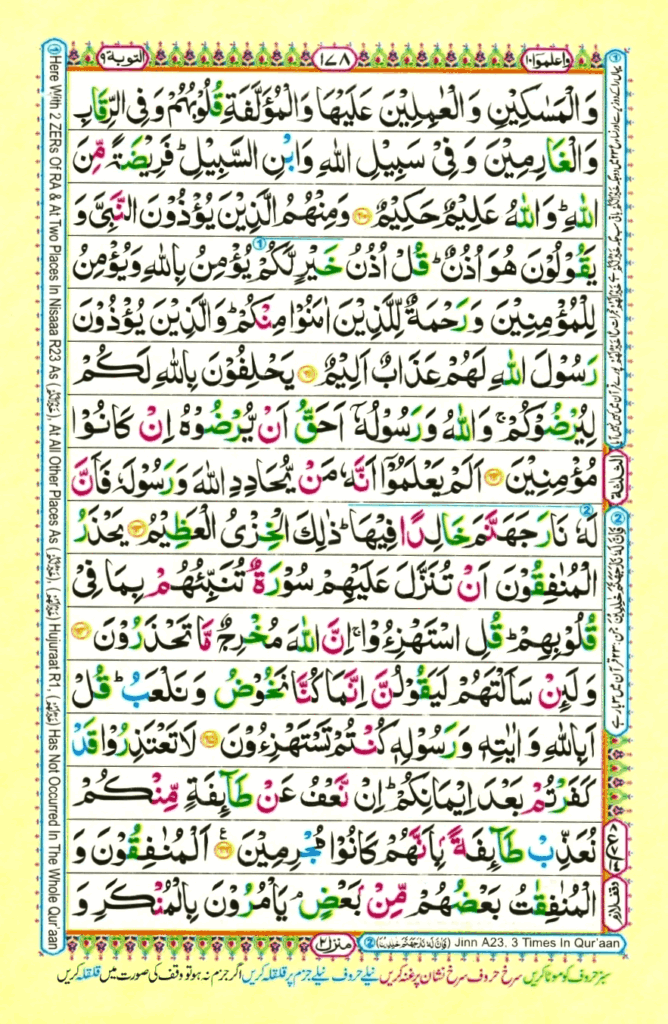 التوبة ٩
١٧٨
واعلموا ١٠
وَالْمَسٰكِيْنِ وَالْعٰمِلِيْنَ عَلَيْهَا وَالْمُؤَلَّفَةِ قُلُوْبُهُمْ وَفِي الرِّقَابِ
وَالْغَارِمِيْنَ وَفِيْ سَبِيْلِ اللهِ وَابْنِ السَّبِيْلِ ؕ فَرِيْضَةً مِّنَ
اللهِ ؕ وَاللهُ عَلِيْمٌ حَكِيْمٌ ﴿۶۰﴾ وَمِنْهُمُ الَّذِيْنَ يُؤْذُوْنَ النَّبِيَّ وَ
يَقُوْلُوْنَ هُوَ اُذُنٌ ؕ قُلْ اُذُنُ خَيْرٍ لَّكُمْ يُؤْمِنُ بِاللهِ وَيُؤْمِنُ
لِلْمُؤْمِنِيْنَ وَرَحْمَةٌ لِّلَّذِيْنَ اٰمَنُوْا مِنْكُمْ ؕ وَالَّذِيْنَ يُؤْذُوْنَ
رَسُوْلَ اللهِ لَهُمْ عَذَابٌ اَلِيْمٌ ﴿۶۱﴾ يَحْلِفُوْنَ بِاللهِ لَكُمْ
لِيُرْضُوْكُمْ ۚ وَاللهُ وَرَسُوْلُهٗۤ اَحَقُّ اَنْ يُّرْضُوْهُ اِنْ كَانُوْا
مُؤْمِنِيْنَ ﴿۶۲﴾ اَلَمْ يَعْلَمُوْۤا اَنَّهٗ مَنْ يُّحَادِدِ اللهَ وَرَسُوْلَهٗ فَاَنَّ
لَهٗ نَارَ جَهَنَّمَ خَالِدًا فِيْهَا ؕ ذٰلِكَ الْخِزْيُ الْعَظِيْمُ ﴿۶۳﴾ يَحْذَرُ
الْمُنٰفِقُوْنَ اَنْ تُنَزَّلَ عَلَيْهِمْ سُوْرَةٌ تُنَبِّئُهُمْ بِمَا فِيْ
قُلُوْبِهِمْ ؕ قُلِ اسْتَهْزِءُوْا ۚ اِنَّ اللهَ مُخْرِجٌ مَّا تَحْذَرُوْنَ ﴿۶۴﴾
وَلَئِنْ سَاَلْتَهُمْ لَيَقُوْلُنَّ اِنَّمَا كُنَّا نَخُوْضُ وَنَلْعَبُ ؕ قُلْ
اَبِاللهِ وَاٰيٰتِهٖ وَرَسُوْلِهٖ كُنْتُمْ تَسْتَهْزِءُوْنَ ﴿۶۵﴾ لَا تَعْتَذِرُوْا قَدْ
كَفَرْتُمْ بَعْدَ اِيْمَانِكُمْ ؕ اِنْ نَّعْفُ عَنْ طَآئِفَةٍ مِّنْكُمْ
نُعَذِّبْ طَآئِفَةًۢ بِاَنَّهُمْ كَانُوْا مُجْرِمِيْنَ ﴿۶۶﴾ اَلْمُنٰفِقُوْنَ وَ
الْمُنٰفِقٰتُ بَعْضُهُمْ مِّنْۢ بَعْضٍ ۘ يَاْمُرُوْنَ بِالْمُنْكَرِ وَ
① Here With 2 ZERs Of RA & At Two Places In Nisaaa R23 As , At All Other Places As , Hujuraat R1, Has Not Occurred In The Whole Qur'aan
منزل ٢
② (فَاِنَّ لَهٗ نَارَ جَهَنَّمَ خٰلِدِيْنَ) Jinn A23. 3 Times In Qur'aan
سبز حروف کو موٹا کریں سرخ حروف سرخ نشان پر غنہ کریں نیلے حروف نیلے جزم پر قلقلہ کریں اگر جزم نہ ہو تو وقف کی صورت میں قلقلہ کریں